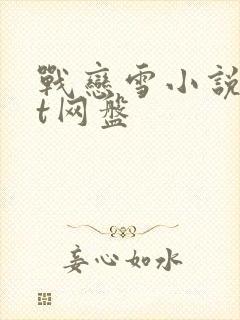 戰戀雪小說
t网盘
妄心如水